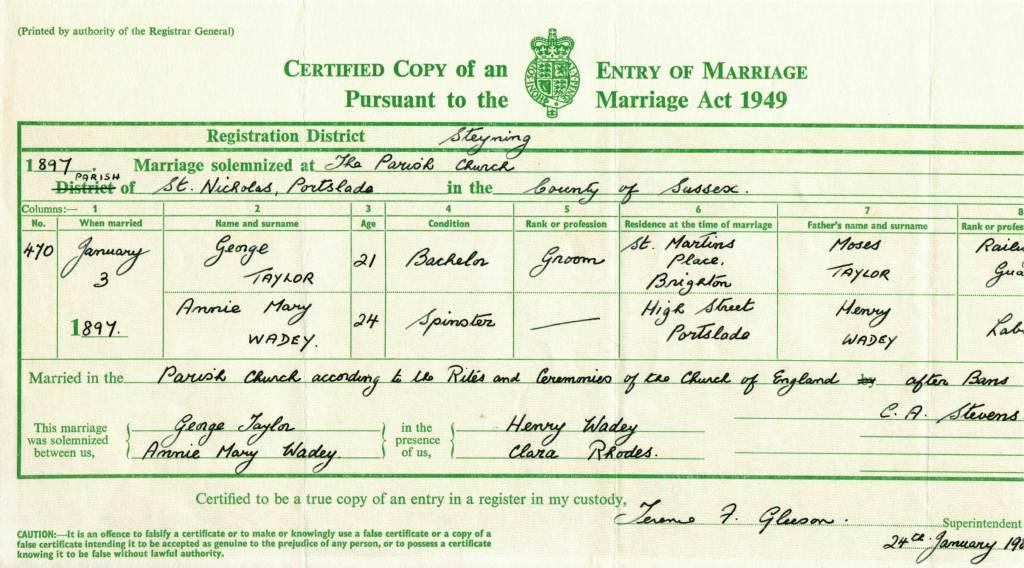 (Printed by authority of the Registrar General)
CERTIFIED COPY of an ENTRY OF MARRIAGE
Pursuant to the Marriage Act 1949
Registration District Steyning
1897. Marriage solemnized at The Parish Church
PARISH
District of St. Nicholas, Portslade in the County of Sussex.
Columns:— 1 2 3 4 5 6 7 8
No. When married Name and surname Age Condition Rank or profession Residence at the time of marriage Father's name and surname Rank or profes
470 January 3 1897. George TAYLOR 21 Bachelor Groom St. Martins Place, Brighton Moses TAYLOR Railw Gua
Annie Mary WADEY. 24 Spinster High Street Portslade Henry WADEY Lab
Married in the Parish Church according to the Rites and Ceremonies of the Church of England by after Bans
C. A. Stevens
This marriage was solemnized between us, George Taylor Annie Mary Wadey. in the presence of us, Henry Wadey Clara Rhodes.
Certified to be a true copy of an entry in a register in my custody,
F. Gleeson. Superintendent
24th January 198
CAUTION:—It is an offence to falsify a certificate or to make or knowingly use a false certificate or a copy of a
false certificate intending it to be accepted as genuine to the prejudice of any person, or to possess a certificate
knowing it to be false without lawful authority.